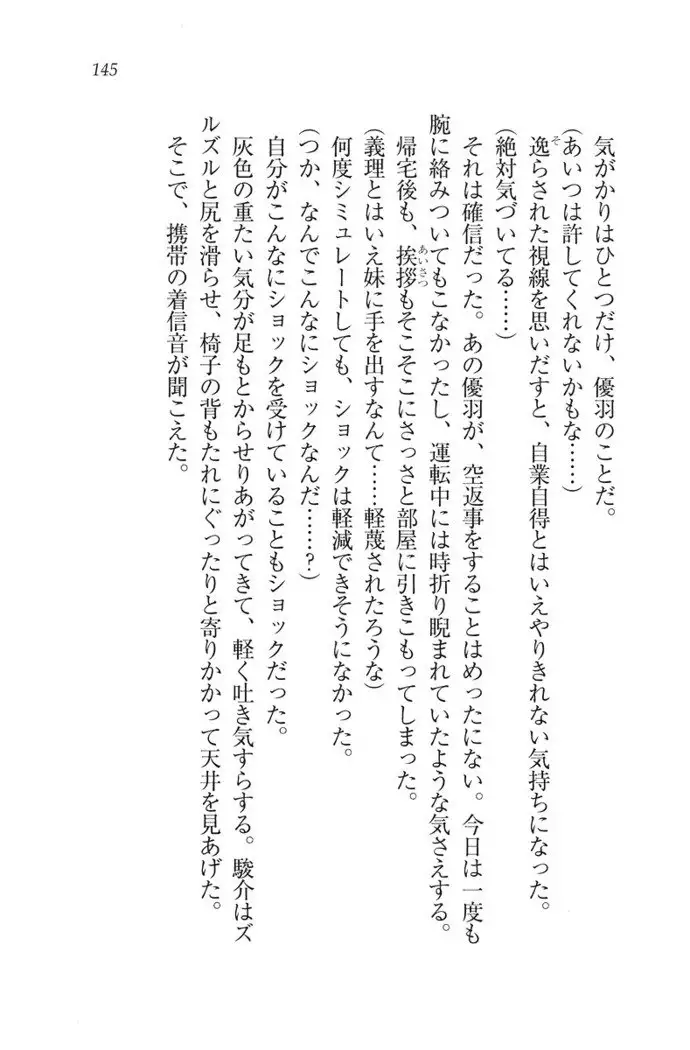 145
気がかりはひとつだけ、優羽のことだ。
(あいつは許してくれないかもな……)
逸らされた視線を思いだすと、自業自得とはいえやりきれない気持ちになった。
(絶対気づいてる……)
それは確信だった。あの優羽が、空返事をすることはめったにない。今日は一度も
腕に絡みついてもこなかったし、運転中には時折り睨まれていたような気さえする。
帰宅後も、挨拶もそこそこにさっさと部屋に引きこもってしまった。
(義理とはいえ妹に手を出すなんて……軽蔑されたろうな)
何度シミュレートしても、ショックは軽減できそうになかった。
(つか、なんでこんなにショックなんだ……?)
自分がこんなにショックを受けていることもショックだった。
灰色の重たい気分が足もとからせりあがってきて、軽く吐き気すらする。駿介はズ
ルズルと尻を滑らせ、椅子の背もたれにぐったりと寄りかかって天井を見あげた。
そこで、携帯の着信音が聞こえた。